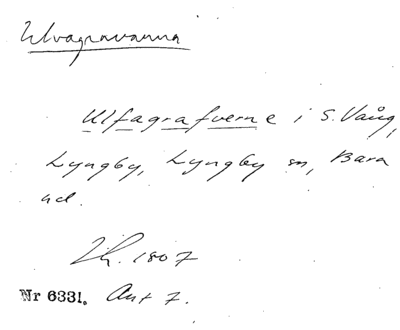 Ulvagravarna
Ulfagrafverne i S. Vång,
Lyngby, Lyngby sn, Bara
hd.
1807
Nr 6331. Akt 7.